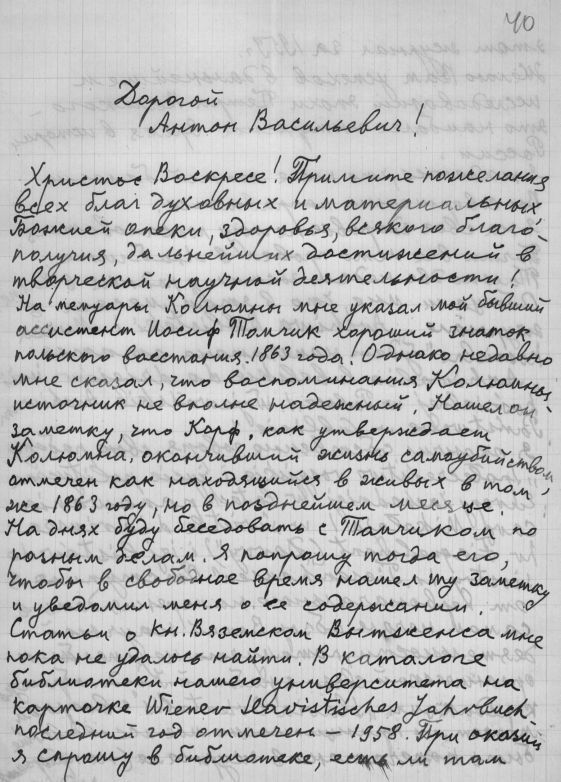 40
Дорогой
Антон Васильевич!
Христос Воскресе! Примите пожелания
всех благ духовных и материальных,
Божией опеки, здоровья, всякого благо-
получия, дальнейших достижений в
творческой научной деятельности!
На мемуары Колюпины мне указал мой бывший
ассистент Иосиф Томчик хороший знаток
польского восстания 1863 года. Однако недавно
мне сказал, что воспоминания Колюпины
источник не вполне надежный. Нашел он
заметку, что Корф, как утверждает
Колюпина, окончивший жизнь самоубийством,
отмечен как находящийся в живых в том
же 1863 году, но в позднейшем месяце.
На днях буду беседовать с Томчиком по
разным делам. Я попрошу тогда его,
чтобы в свободное время нашел ту заметку
и уведомил меня о ее содержании.
Статьи о кн. Вяземском Вытженса мне
пока не удалось найти. В каталоге
библиотеки нашего университета на
карточке Wiener Slavistisches Jahrbuch
последний год отмечен – 1958. При оказии
я спрошу в библиотеке, есть ли там